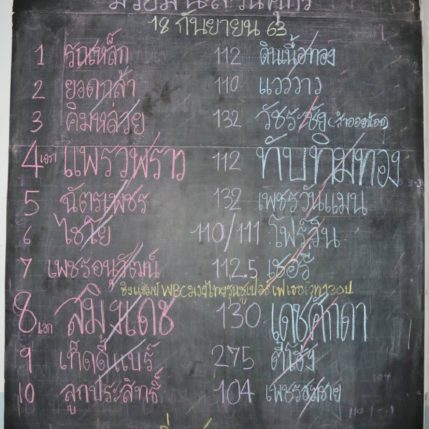 18 กันยายน 63
1 รถเหล็ก 112 ดินเนื้อทอง
2 ยอดกล้า 110 แวววาว
3 คิมหล่วย 132 วัชระชัย
4 เอก แพรวพราว 112 ทับทิมทอง
5 ฉัตรเพชร 132 เพชรวันแมน
6 ไชโย 110/111 โฟร์วัน
7 เพชรอนุวัฒน์ 112.5 เชอรี่
ชิงแชมป์ WBC มวยไทยรุ่นซูเปอร์
8 เอก สมิงเดช 130 เดชศักดา
9 เท็ดดี้แบร์ 275
10 ลูกประสิทธิ์ 104